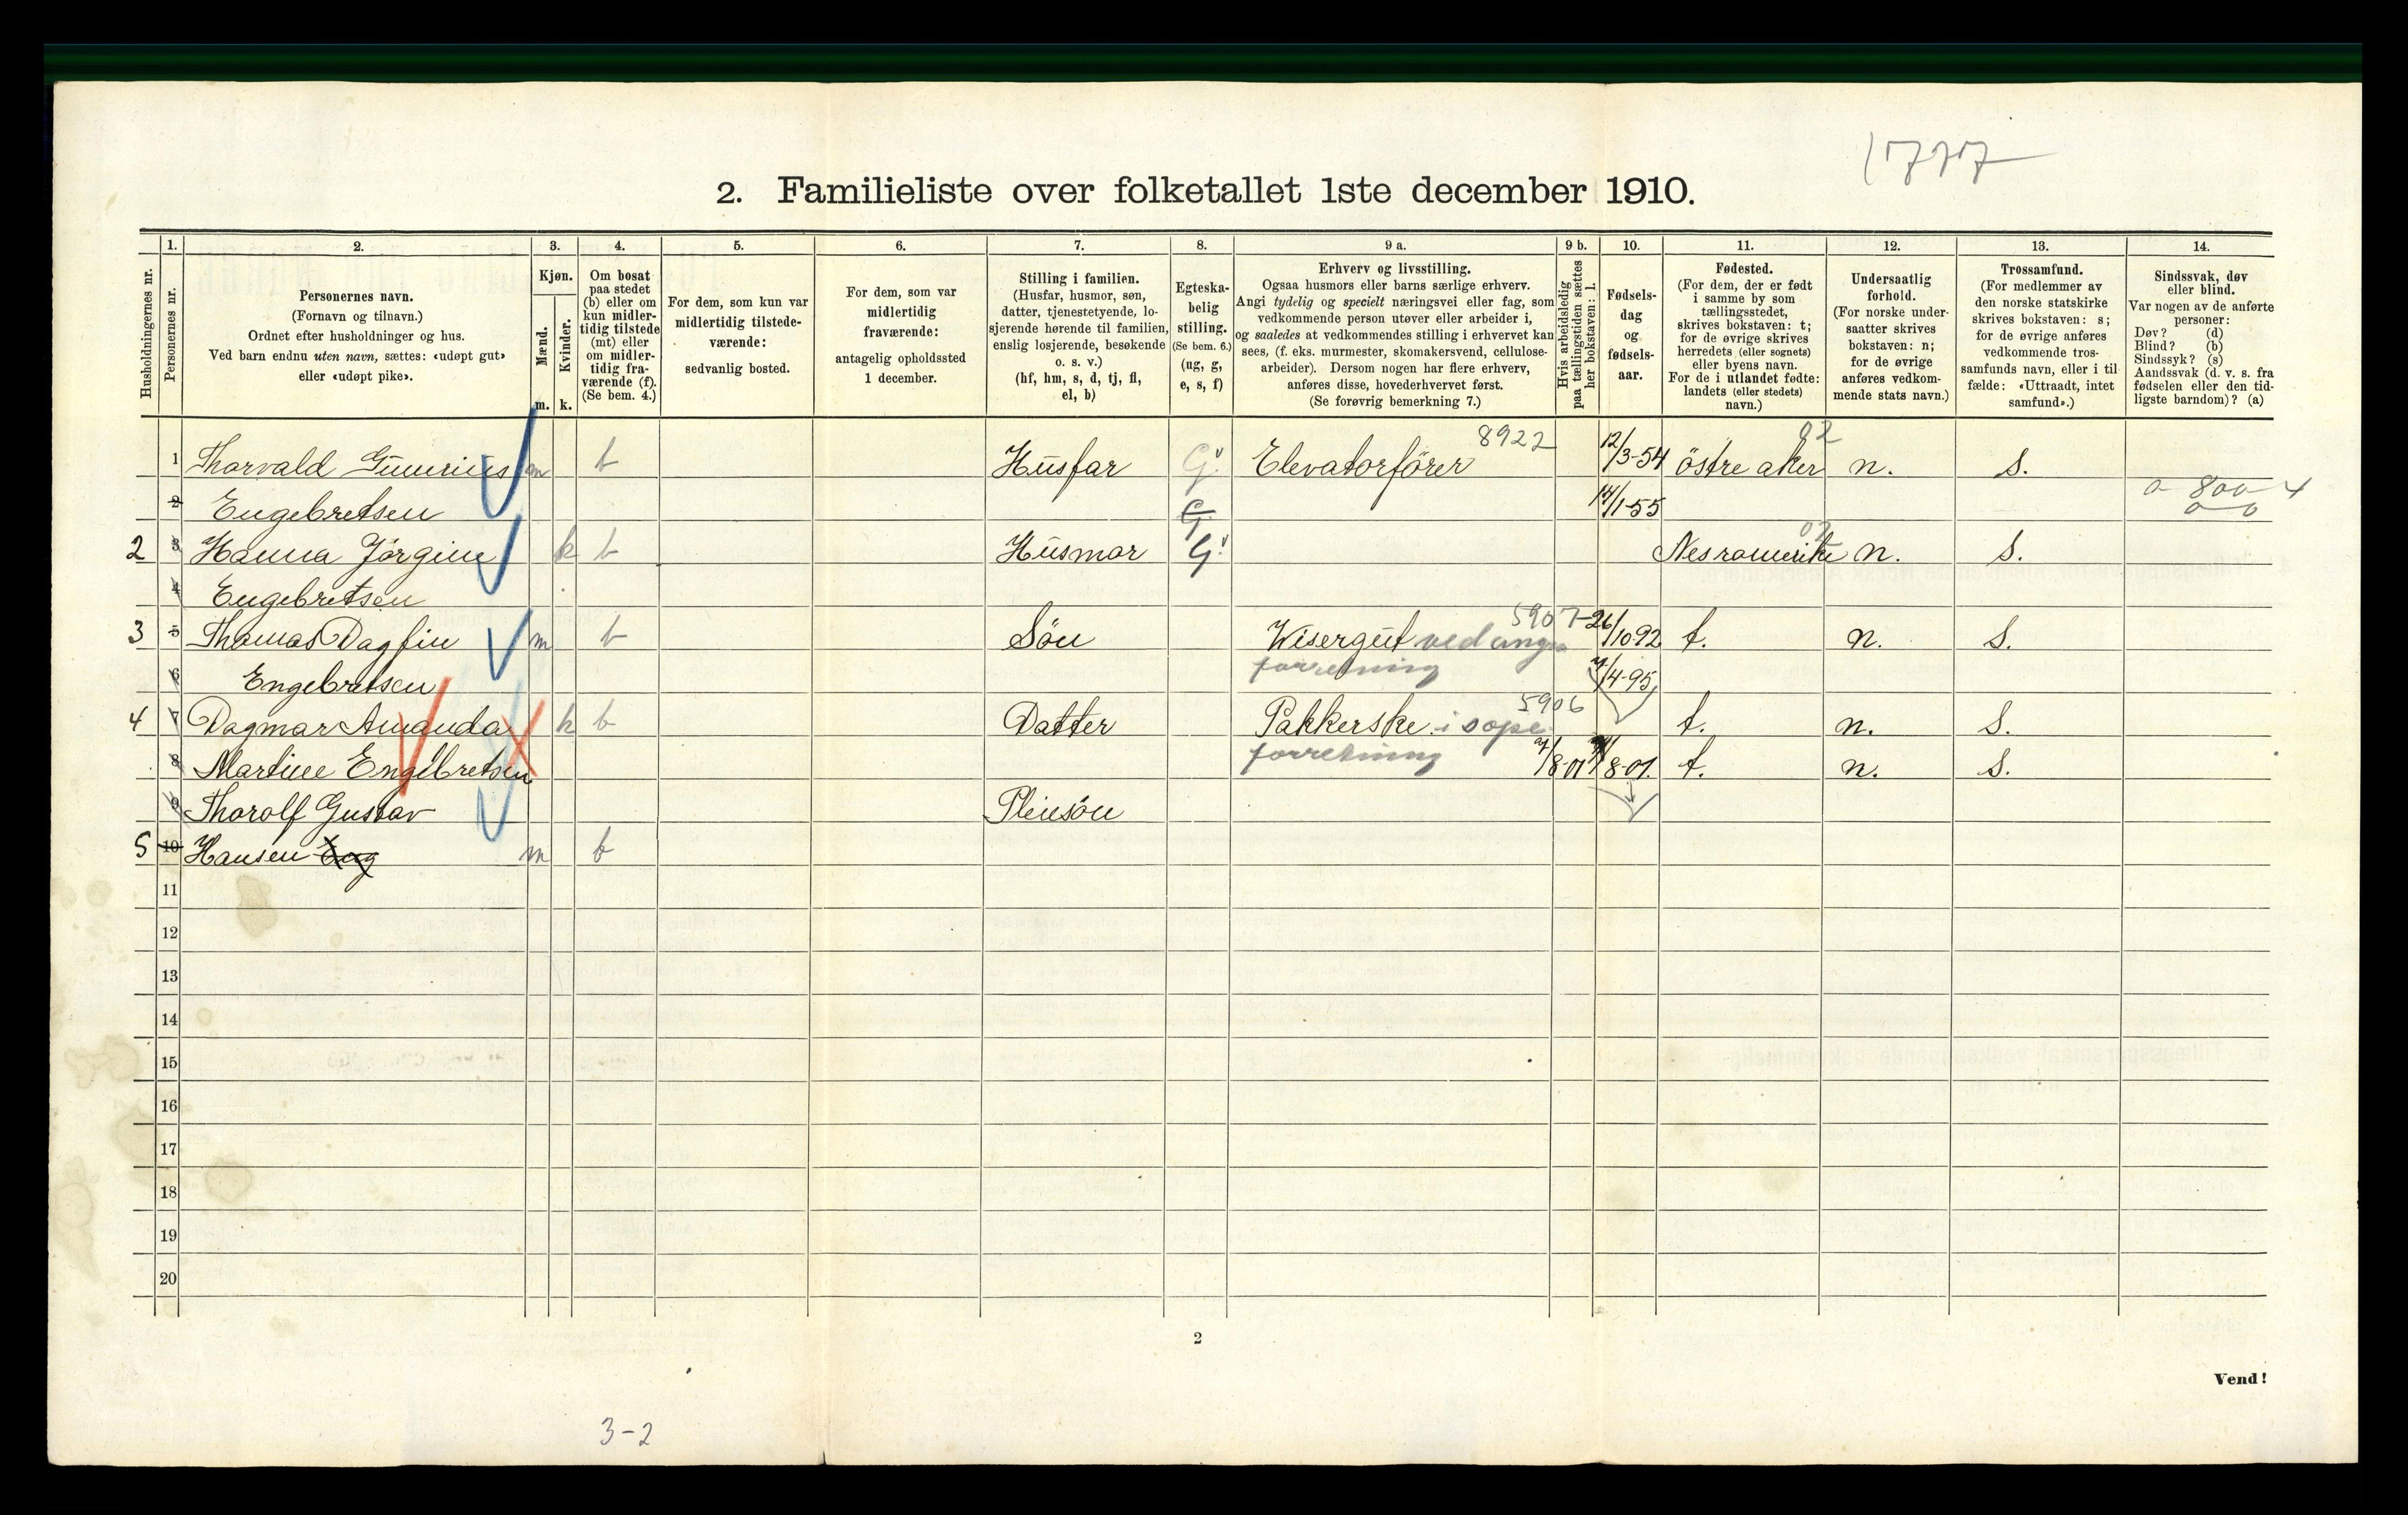 2. Familieliste over folketallet 1ste december 1910.
Husholdningernes nr.
1.
Personernes nr.
2.
Personernes navn.
(Fornavn og tilnavn.)
Ordnet efter husholdninger og hus.
Ved barn endnu uten navn, sættes: «udøpt gut»
eller «udøpt pike».
3.
Kjøn.
Mænd.
Kvinder.
m. k.
4.
Om bosat
paa stedet
(b) eller om
kun midler-
tidig tilstede
(mt) eller
om midler-
tidig fra-
værende (f).
(Se bem. 4.)
5.
For dem, som kun var
midlertidig tilstede-
værende:
sedvanlig bosted.
6.
For dem, som var
midlertidig
fraværende:
antagelig opholdssted
1 december.
7.
Stilling i familien.
(Husfar, husmor, søn,
datter, tjenestetyende, lo-
sjerende hørende til familien,
enslig losjerende, besøkende
o. s. v.)
(hf, hm, s, d, tj, fl,
el, b)
8.
Egteska-
belig
stilling.
(Se bem. 6.)
(ug, g,
e, s, f)
9 a.
Erhverv og livsstilling.
Ogsaa husmors eller barns særlige erhverv.
Angi tydelig og specielt næringsvei eller fag, som
vedkommende person utøver eller arbeider i,
og saaledes at vedkommendes stilling i erhvervet kan
sees, (f. eks. murmester, skomakersvend, cellulose-
arbeider). Dersom nogen har flere erhverv,
anføres disse, hovederhvervet først.
(Se forøvrig bemerkning 7.)
9 b.
Hvis arbeidsledig
paa tællingstiden sættes
her bokstaven: l.
10.
Fødsels-
dag
og
fødsels-
aar.
11.
Fødested.
(For dem, der er født
i samme by som
tællingsstedet,
skrives bokstaven: t;
for de øvrige skrives
herredets (eller sognets)
eller byens navn.
For de i utlandet fødte:
landets (eller stedets)
navn.)
12.
Undersaatlig
forhold.
(For norske under-
saatter skrives
bokstaven: n;
for de øvrige
anføres vedkom-
mende stats navn.)
13.
Trossamfund.
(For medlemmer av
den norske statskirke
skrives bokstaven: s;
for de øvrige anføres
vedkommende tros-
samfunds navn, eller i til-
fælde: «Uttraadt, intet
samfund».)
14.
Sindssvak, døv
eller blind.
Var nogen av de anførte
personer:
Døv? (d)
Blind? (b)
Sindssyk? (s)
Aandssvak (d. v. s. fra
fødselen eller den tid-
ligste barndom)? (a)
8922 02
1 Thorvald Gunerius m b Husfar G. Elevatorförer 12/3-54 östre aker n. S.
2 Engebretsen G. 14/1-55 800-4
02
2 3 Hanna Jörgine k b Husmor G. Nesromerike n. S.
4 Engebretsen
5907
3 5 Thomas Dagfin m b Sön Wisergut ved 26/10 92 t. n. S.
6 Engebretsen forretning 7/4-95
5906
4 7 Dagmar Amanda k b Datter Pakkerske i sope t. n. S.
8 Martine Engebretsen forretning 8-01 8-01. t. n. S.
9 Thorolf Gustav Pleiesön
5 10 Hansen Eng m b
11
12
13
14
15
16
17
18
19
20
2
Vend!
3-2